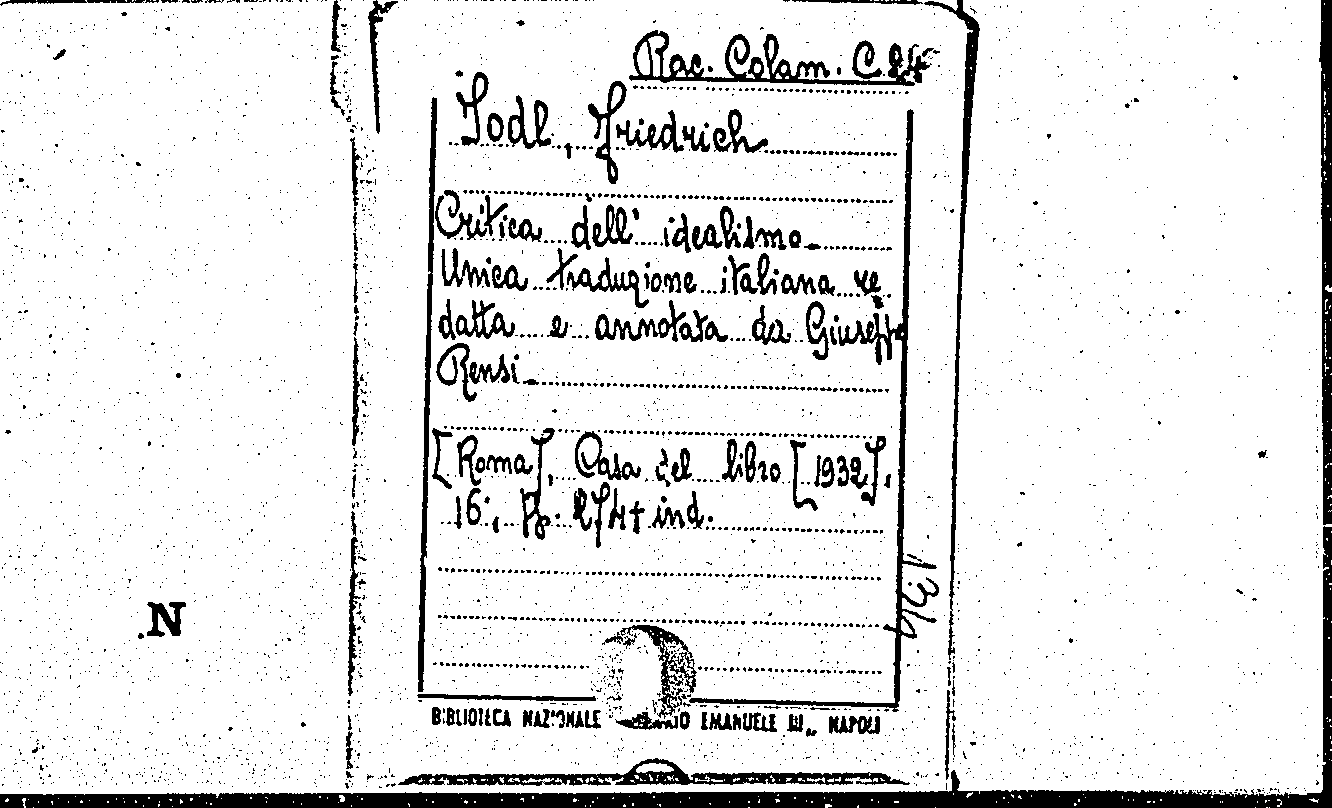 Rac. Colam. C. 84
Jodl, Friedrich
Critica dell' idealismo.
Unica traduzione italiana re
datta e annotata da Giuseppe
Rensi.
[Roma], Casa del libro [1932].
16°, pp. 274 + ind.
N
BIBLIOTECA NAZIONALE EMANUELE III„ NAPOLI